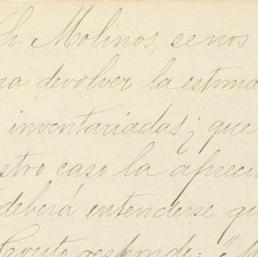 h. Molinos, se nos
na devolver la estima
inventariadas; que
stro caso la apreci
deberá entenderse qu
responde: "